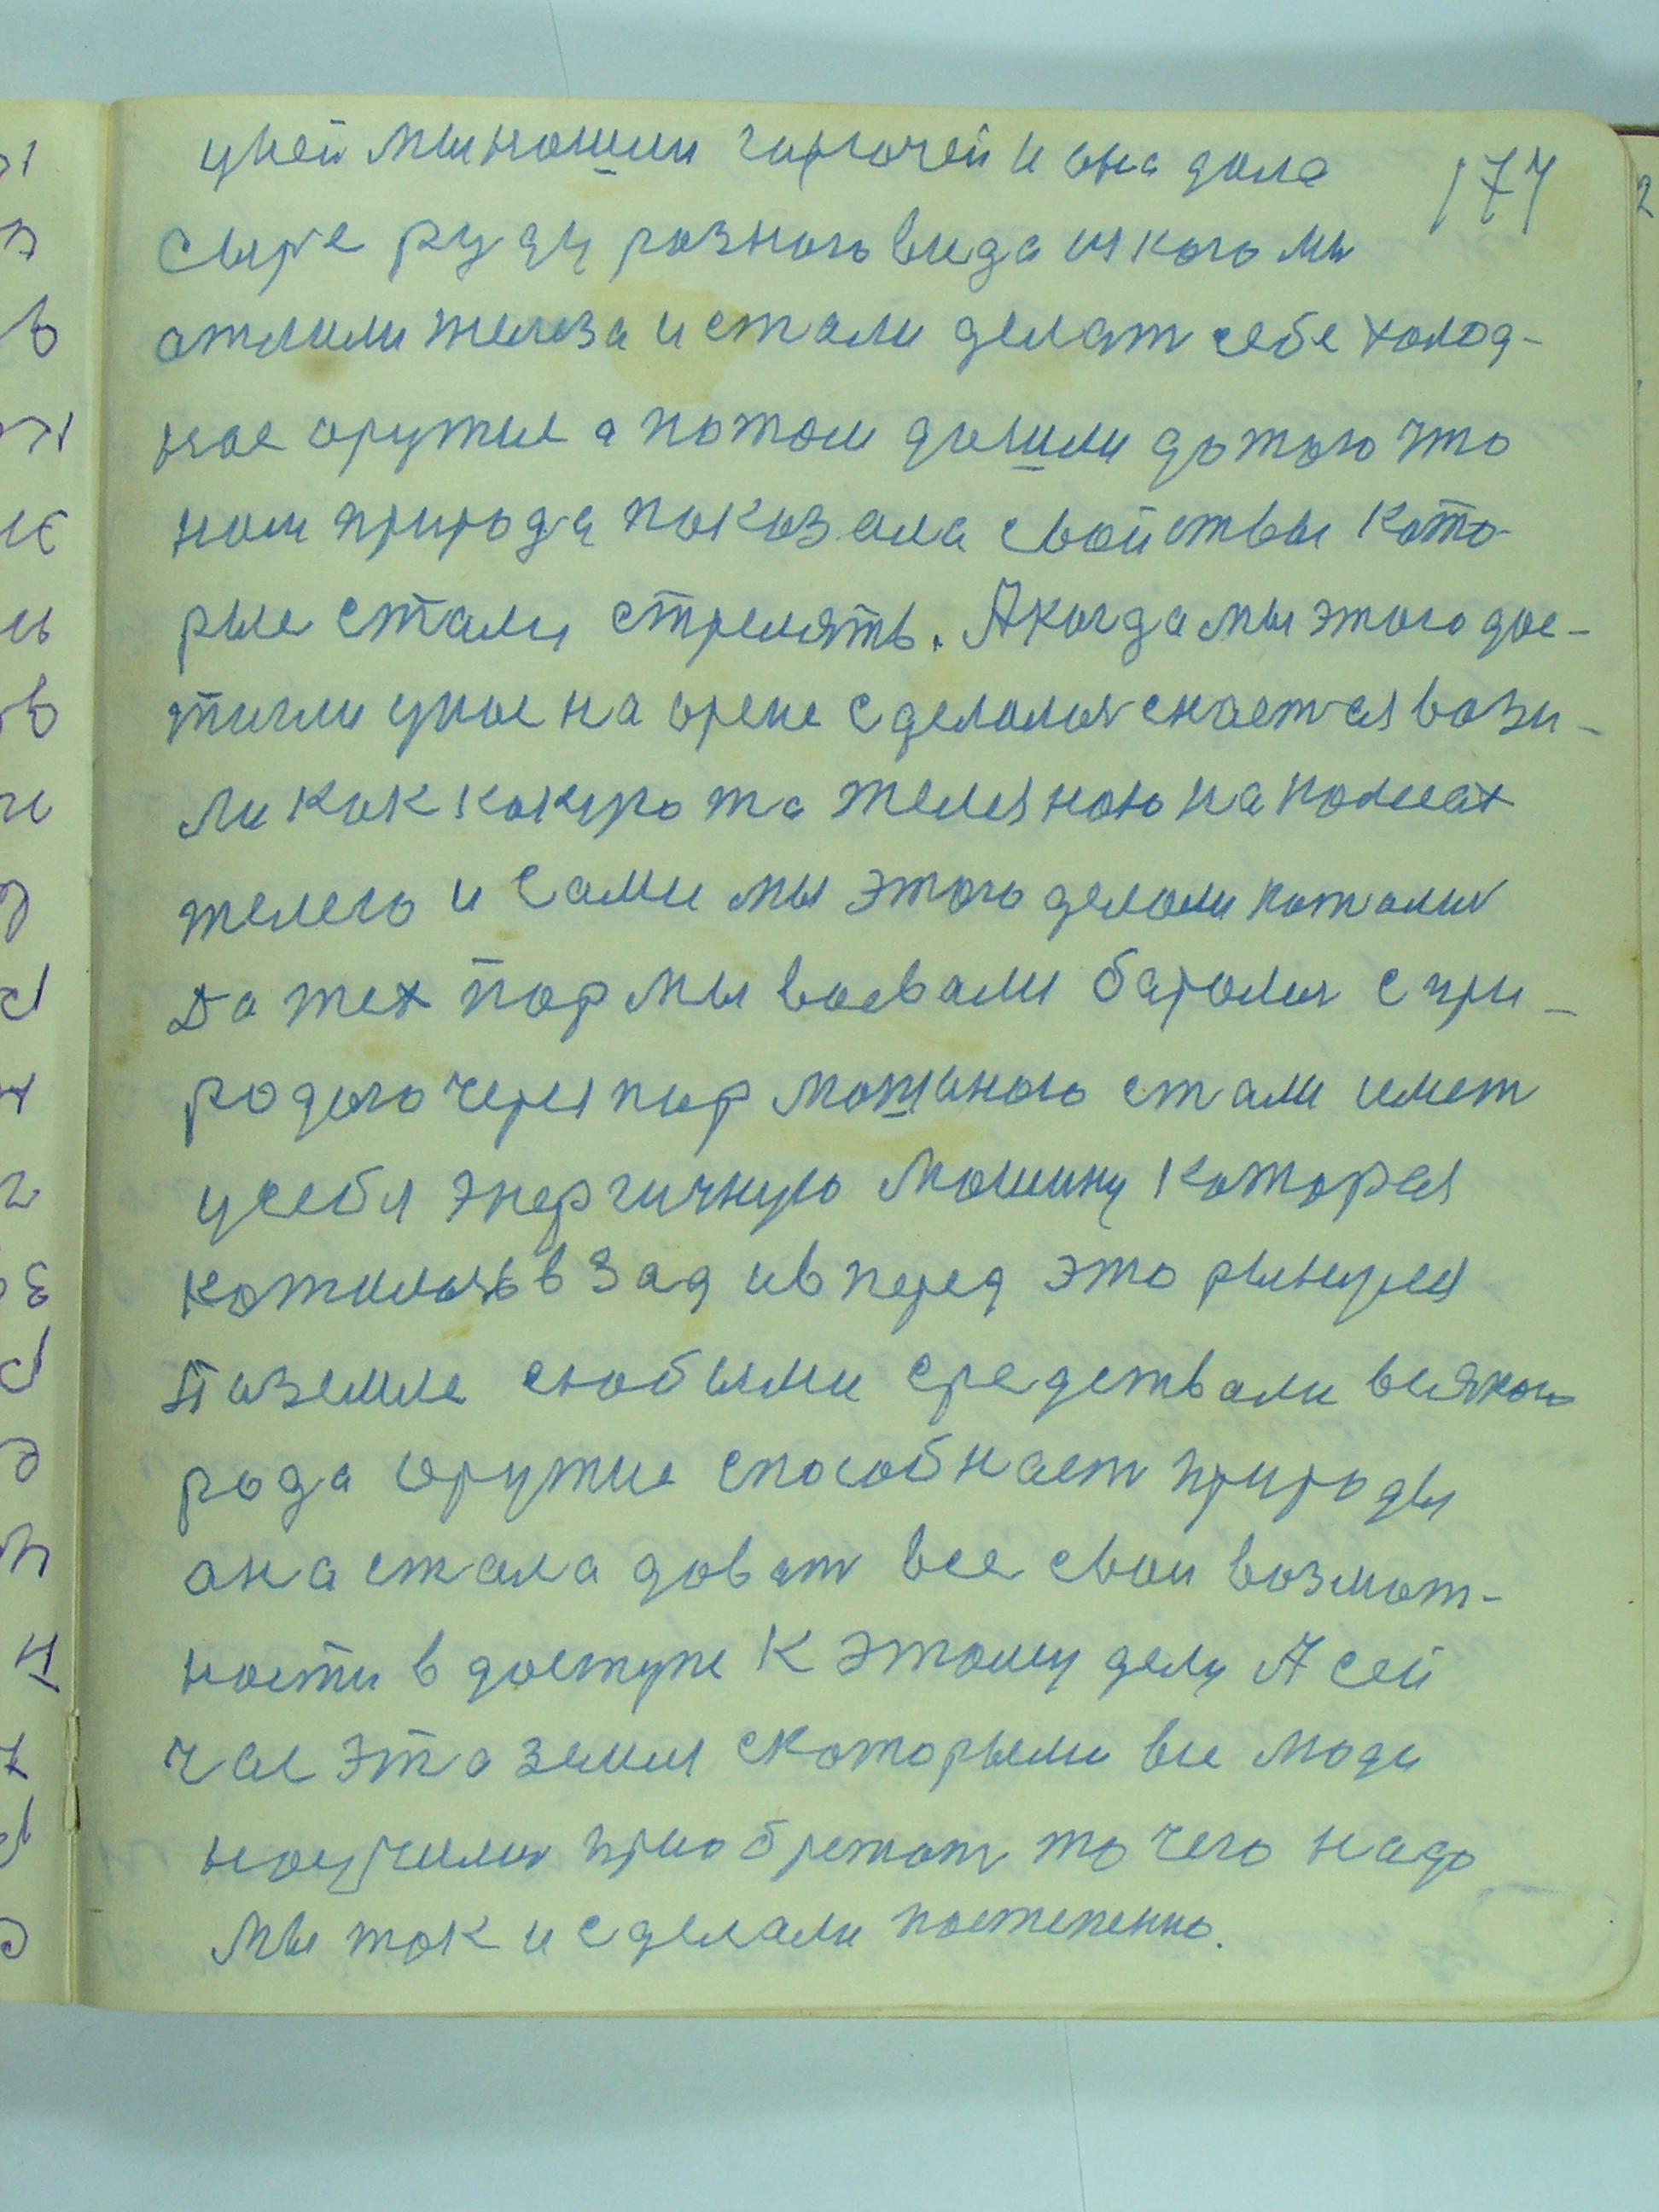 уней мы нашли гарючей и она дала 174
сыре руду разного вида ис кого мы
атлили железа и стали делат себе холод-
ное оружие а потом дошли дотого что
нам природа показала свойствы кото-
рые стали стрелять. А когда мы этого дос-
тигли унас на арене сделалися снается вози-
ли как какуюта желязною на полках
телего и сами мы этого делали катались
Да тех пор мы воевали баролися с при-
родого через пар машиною стали имет
усебя энергичную машину которая
катилась взад ивперед это рынулся
Паземле слюбыми средствами всякого
рода оружие способнает природы
она стала доват все свои возмож-
ности в доступе К этому делу А сей
час эта земля скоторыми все люди
научились приобретат то чего надо
мы так и сделали постепенно.